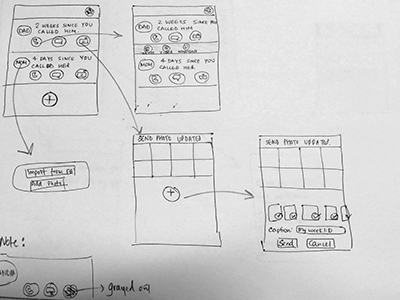 DAD
2 WEEKS SINCE YOU
CALLED HIM.
MOM
4 DAYS SINCE YOU
CALLED HER
DAD
2 WEEKS SINCE YOU
CALLED HIM
MOM
4 DAYS SINCE YOU
CALLED HER
Import from FB
Add Photo
SEND PHOTO UPDATES
SEND PHOTO UPDATES
Caption: My week! :D
Send
Cancel
Note:
grayed out